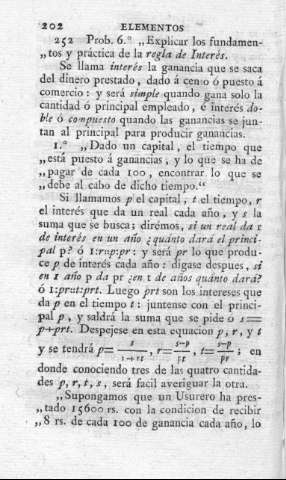 202 ELEMENTOS
252 Prob. 6.º „Explicar los fundamen-
„tos y práctica de la regla de Interés.
Se llama interés la ganancia que se saca
del dinero prestado, dado á censo ó puesto á
comercio: y será simple quando gana solo la
cantidad ó principal empleado, é interés do-
ble ó compuesto quando las ganancias se jun-
tan al principal para producir ganancias.
1.º „Dado un capital, el tiempo que
„está puesto á ganancias, y lo que se ha de
„pagar de cada 100, encontrar lo que se
„debe al cabo de dicho tiempo.“
Si llamamos p el capital, t el tiempo, r
el interés que da un real cada año, y s la
suma que se busca; dirémos, si un real da r
de interés en un año ¿quánto dará el princi-
pal p? ó 1:r::p:pr: y será pr lo que produ-
ce p de interés cada año: dígase despues, si
en 1 año p da pr ¿en t de años quánto dará?
ó 1:pr::t:prt. Luego prt son los intereses que
da p en el tiempo t: juntense con el princi-
pal p, y saldrá la suma que se pide ó s=
p+prt. Despejese en esta equacion p, r, y t
y se tendrá p= s/1+rt, r= s-p/pt, t= s-p/pr; en
donde conociendo tres de las quatro cantida-
des p, r, t, s, será facil averiguar la otra.
„Supongamos que un Usurero ha pres-
„tado 15600 rs. con la condicion de recibir
„8 rs. de cada 100 de ganancia cada año, lo